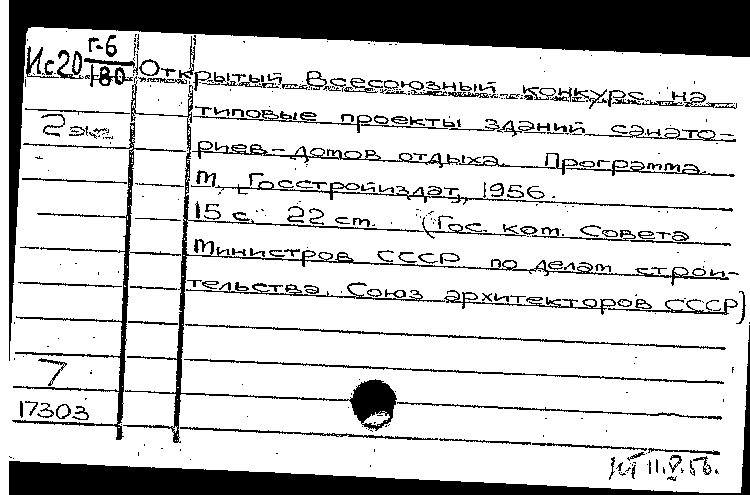 Ис20 г-6/180 Открытый Всесоюзный конкурс на
2 экз типовые проекты зданий санато-
риев-домов отдыха. Программа.
М., Госстройиздат, 1956.
15 с. 22 см. (Гос. ком. Совета
Министров СССР по делам строи-
тельства. Союз архитекторов СССР)
7
17303
11.V.56.